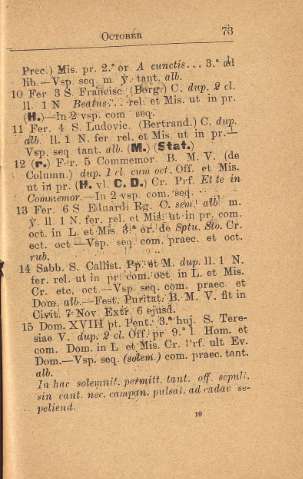 OCTOBER 73
Prec.) Mis. pr. 2.ª or A cunctis... 3.ª ad
lib.—Vsp. seq. m. ỹ. tant. alb.
10 Fer 3 S Francisc (Borg.) C. dup. 2 cl.
ll. 1 N Beatus... rel. et Mis. ut in pr.
(H.)—In 2 vsp. com seq.
11 Fer. 4 S. Ludovic. (Bertrand.) C. dup.
alb. ll. 1 N. fer rel. et Mis. ut in pr.—
Vsp. seq tant. alb. (M.) (Stat.)
12 (r.) Fer. 5 Commemor. B. M. V. (de
Column.) dup. 1 cl. cum oct. Off. et Mis.
ut in pr. (H. vl. C. D. Cr. Prf. Et te in
Commemor.—In 2 vsp. com. seq.
13 Fer. 6 S Eduardi Rg. C. sem. alb. m.
ỹ. ll 1 N. fer. rel. et Mis. ut in pr. com.
oct. in L. et Mis. 3.ª or. de Sptu. Sto. Cr.
oct. oct—Vsp. seq. com. praec. et oct.
rub.
14 Sabb. S. Callist. Pp. et M. dup. ll. 1 N.
fer. rel. ut in pr. com. oct. in L. et Mis.
Cr. etc, oct.—Vsp. seq. com. praec. et
Dom. alb.—Fest. Puritat. B. M. V. fit in
Civit. 7 Nov Extr. 6 ejusd.
15 Dom. XVIII pt. Pent. 3.ª huj. S. Tere-
siae V. dup. 2 cl. Off. pr 9.ª l. Hom. et
com. Dom. in L. et Mis. Cr. Prf. ult Ev.
Dom.—Vsp. seq. (solem.) com. praec. tant.
alb.
In hac solemnit. permitt. tant. off. sepult.
sin cant. nec. campan. pulsat. ad cadav se-
peliend.
10